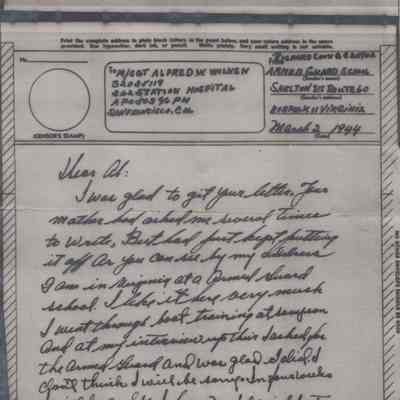 Print the complete address in plain block letters in the panel below, and your return address in the space
provided. Use typewriter, dark ink, or pencil. Write plainly. Very small writing is not suitable.
No.
(CENSOR'S STAMP)
To M/SGT ALFRED W.
STATION HOSPITAL
APO
SAN FRANCISCO, CAL
From
ARMED GUARD SCHOOL
(Sender's name)
SHELTON ROUTE 60
(Sender's address)
NORFOLK 11 VIRGINIA
March 2, 1944
(Date)
Dear Al:
I was glad to get your letter, Your
mother had asked me several times
to write, But had just kept putting
it off As you can see by my address
I am in Virginia at a Armed Guard
school. I like it here very much
I went through boot training at Sampson
And at my interview up there I asked for
the Armed Guard And was glad I did, I
don't think I will be sorry. In four weeks